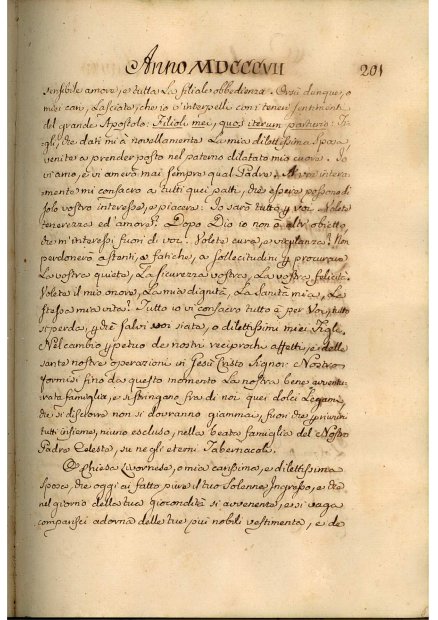 Anno MDCCCVII 201
sensibile amore, e tutta la filiale obbedienza. Orsù dunque, o
miei cari, lasciate, che io v'interpelli con i teneri sentimenti
del grande Apostolo: Filioli mei, quos iterum parturio: Fi-
gli, che dati mi à novellamente la mia dilettissima Sposa,
venite a prender posto nel paterno dilatato mio cuore. Io
vi amo, e vi amerò mai sempre qual Padre. A voi intera-
mente mi consacro a tutti quei patti, che essere possono di
solo vostro interesse, e piacere: Io sarò tutto p voi. Volete
tenerezza ed amore? Dopo Dio io non ò altri obietto,
che m'interessi fuori di voi. Volete cura, e vigilanza? Non
perdonerò a stenti, a fatiche, a sollecitudini p procurare
la vostra quiete, la sicurezza vostra, la vostra felicità.
Volete il mio onore, la mia dignità, la sanità mia, la
stessa mia vita? Tutto io vi consacro tutto è per voi, tutto
si perda, p chè salvi voi siate, o dilettissimi miei Figli.
Nel cambio ppetuo de nostri reciprochi affetti, e delle
sante nostre operazioni in Gesù Cristo Signor Nostro
formisi fino da questo momento la nostra bene avventu-
rata famiglia, e si stringano fra di noi quei dolci legami,
che si disciorre non si dovranno giammai, fuori che p riunir
tutti insieme, niuno escluso, nella beata famiglia del Nostro
Padre Celeste, su ne gli eterni Tabernacoli.
O Chiesa Livornese, o mia carissima, e dilettissima
Sposa, che oggi ai fatto pure il tuo solenne Ingresso, e che
nel giorno della tua giocondità sì avvenente, e sì vaga
comparisci adorna delle tue più nobili vestimenta, e de